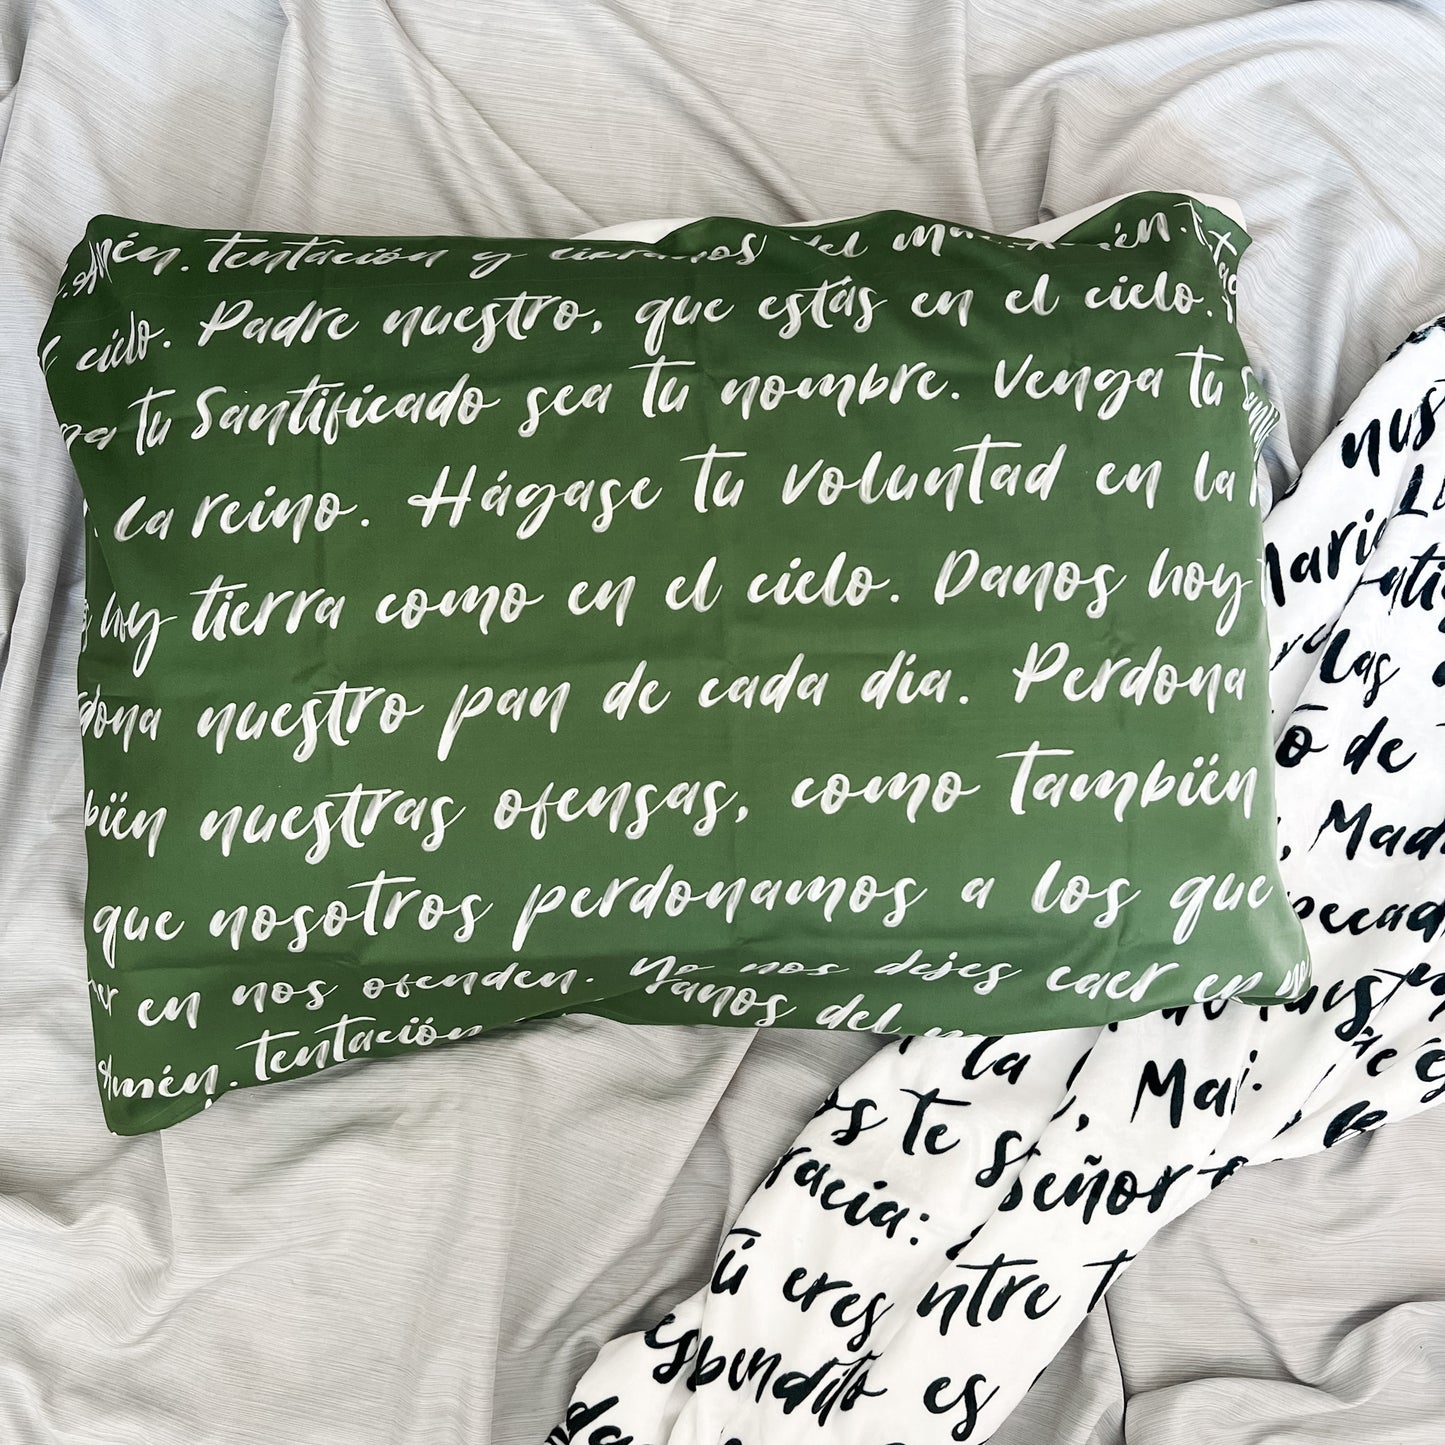 Amén. tentación y del Amén.
cielo. Padre nuestro, que estás en el cielo.
tu Santificado sea tu nombre. Venga tu
La reino. Hágase tu voluntad en la
hoy tierra como en el cielo. Danos hoy
dona nuestro pan de cada día. Perdona
bïén nuestras ofensas, como Tambïén
que nosotros perdonamos a los que
en nos ofenden. No nos dejes caer en
Amén. tentacïön del
Marí
Las
ö de
, Mad
pecad
la
, Mar
te
señor
racia:
Tü eres ntre
es bendito es